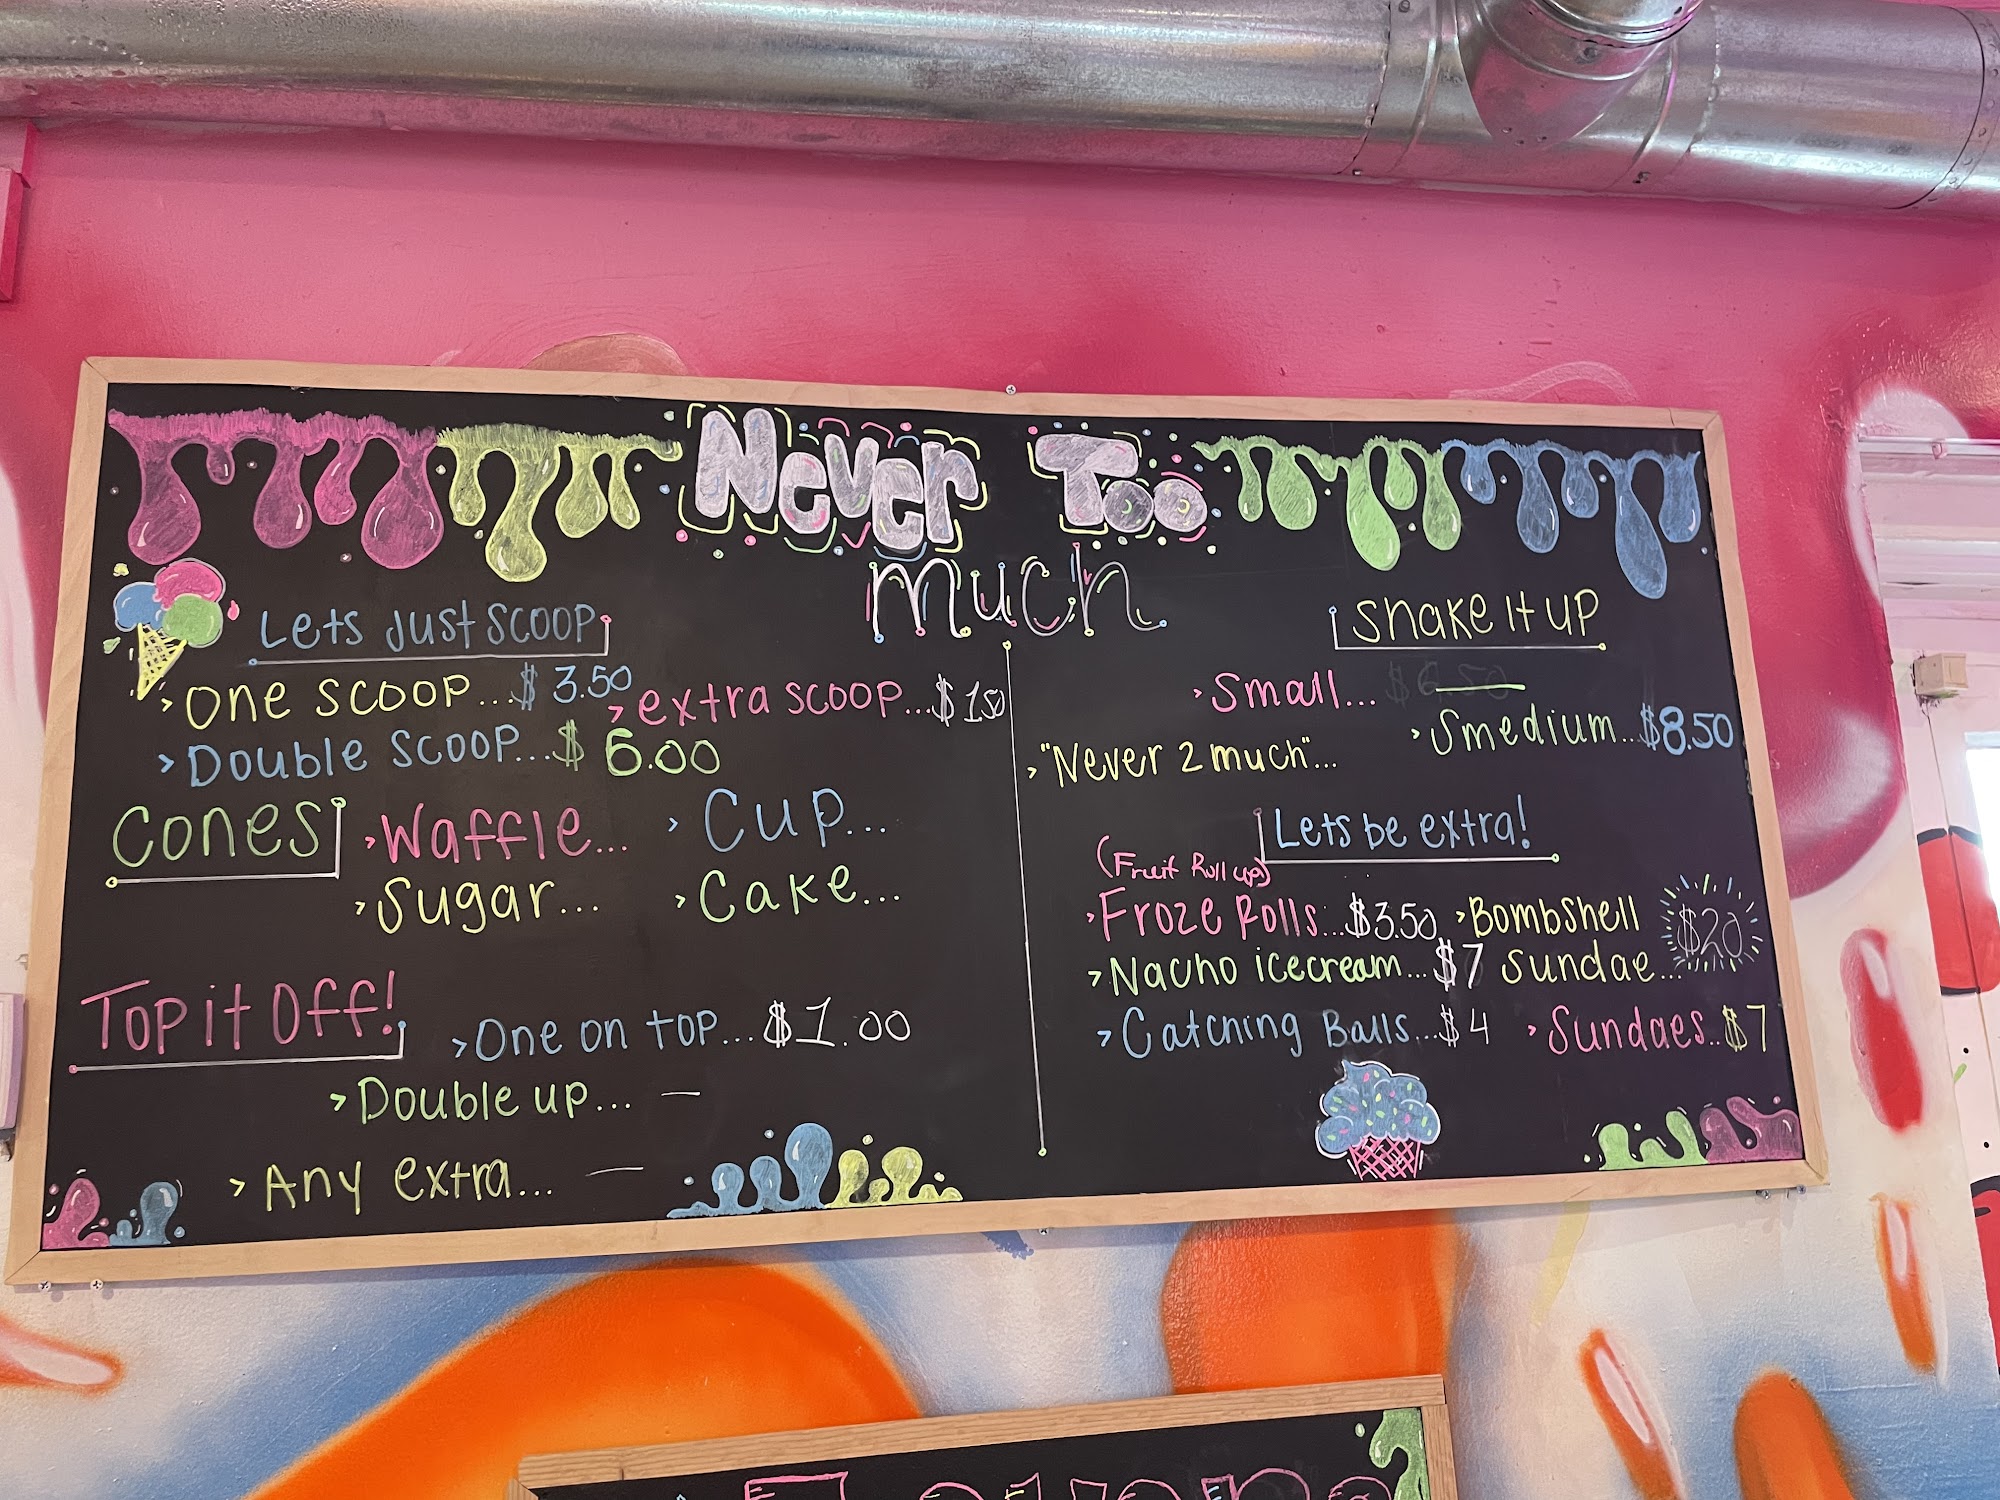 Never Too
much
Lets Just SCOOP
> One scoop...$ 3.50
> extra scoop...$ 1.50
> Double scoop...$ 6.00
Cones
> Waffle...
> Cup...
> Sugar...
> Cake...
Top it Off!
> One on top...$1.00
> Double up... —
> Any extra... —
Shake it up
> Small... $6.50
> Smedium...$8.50
> "Never 2 much"...
Lets be extra!
(Fruit Roll up)
> Froze Rolls...$3.50
> Bombshell
Sundae... $20
> Nacho icecream...$7
> Catching Balls...$4
> Sundaes..$7